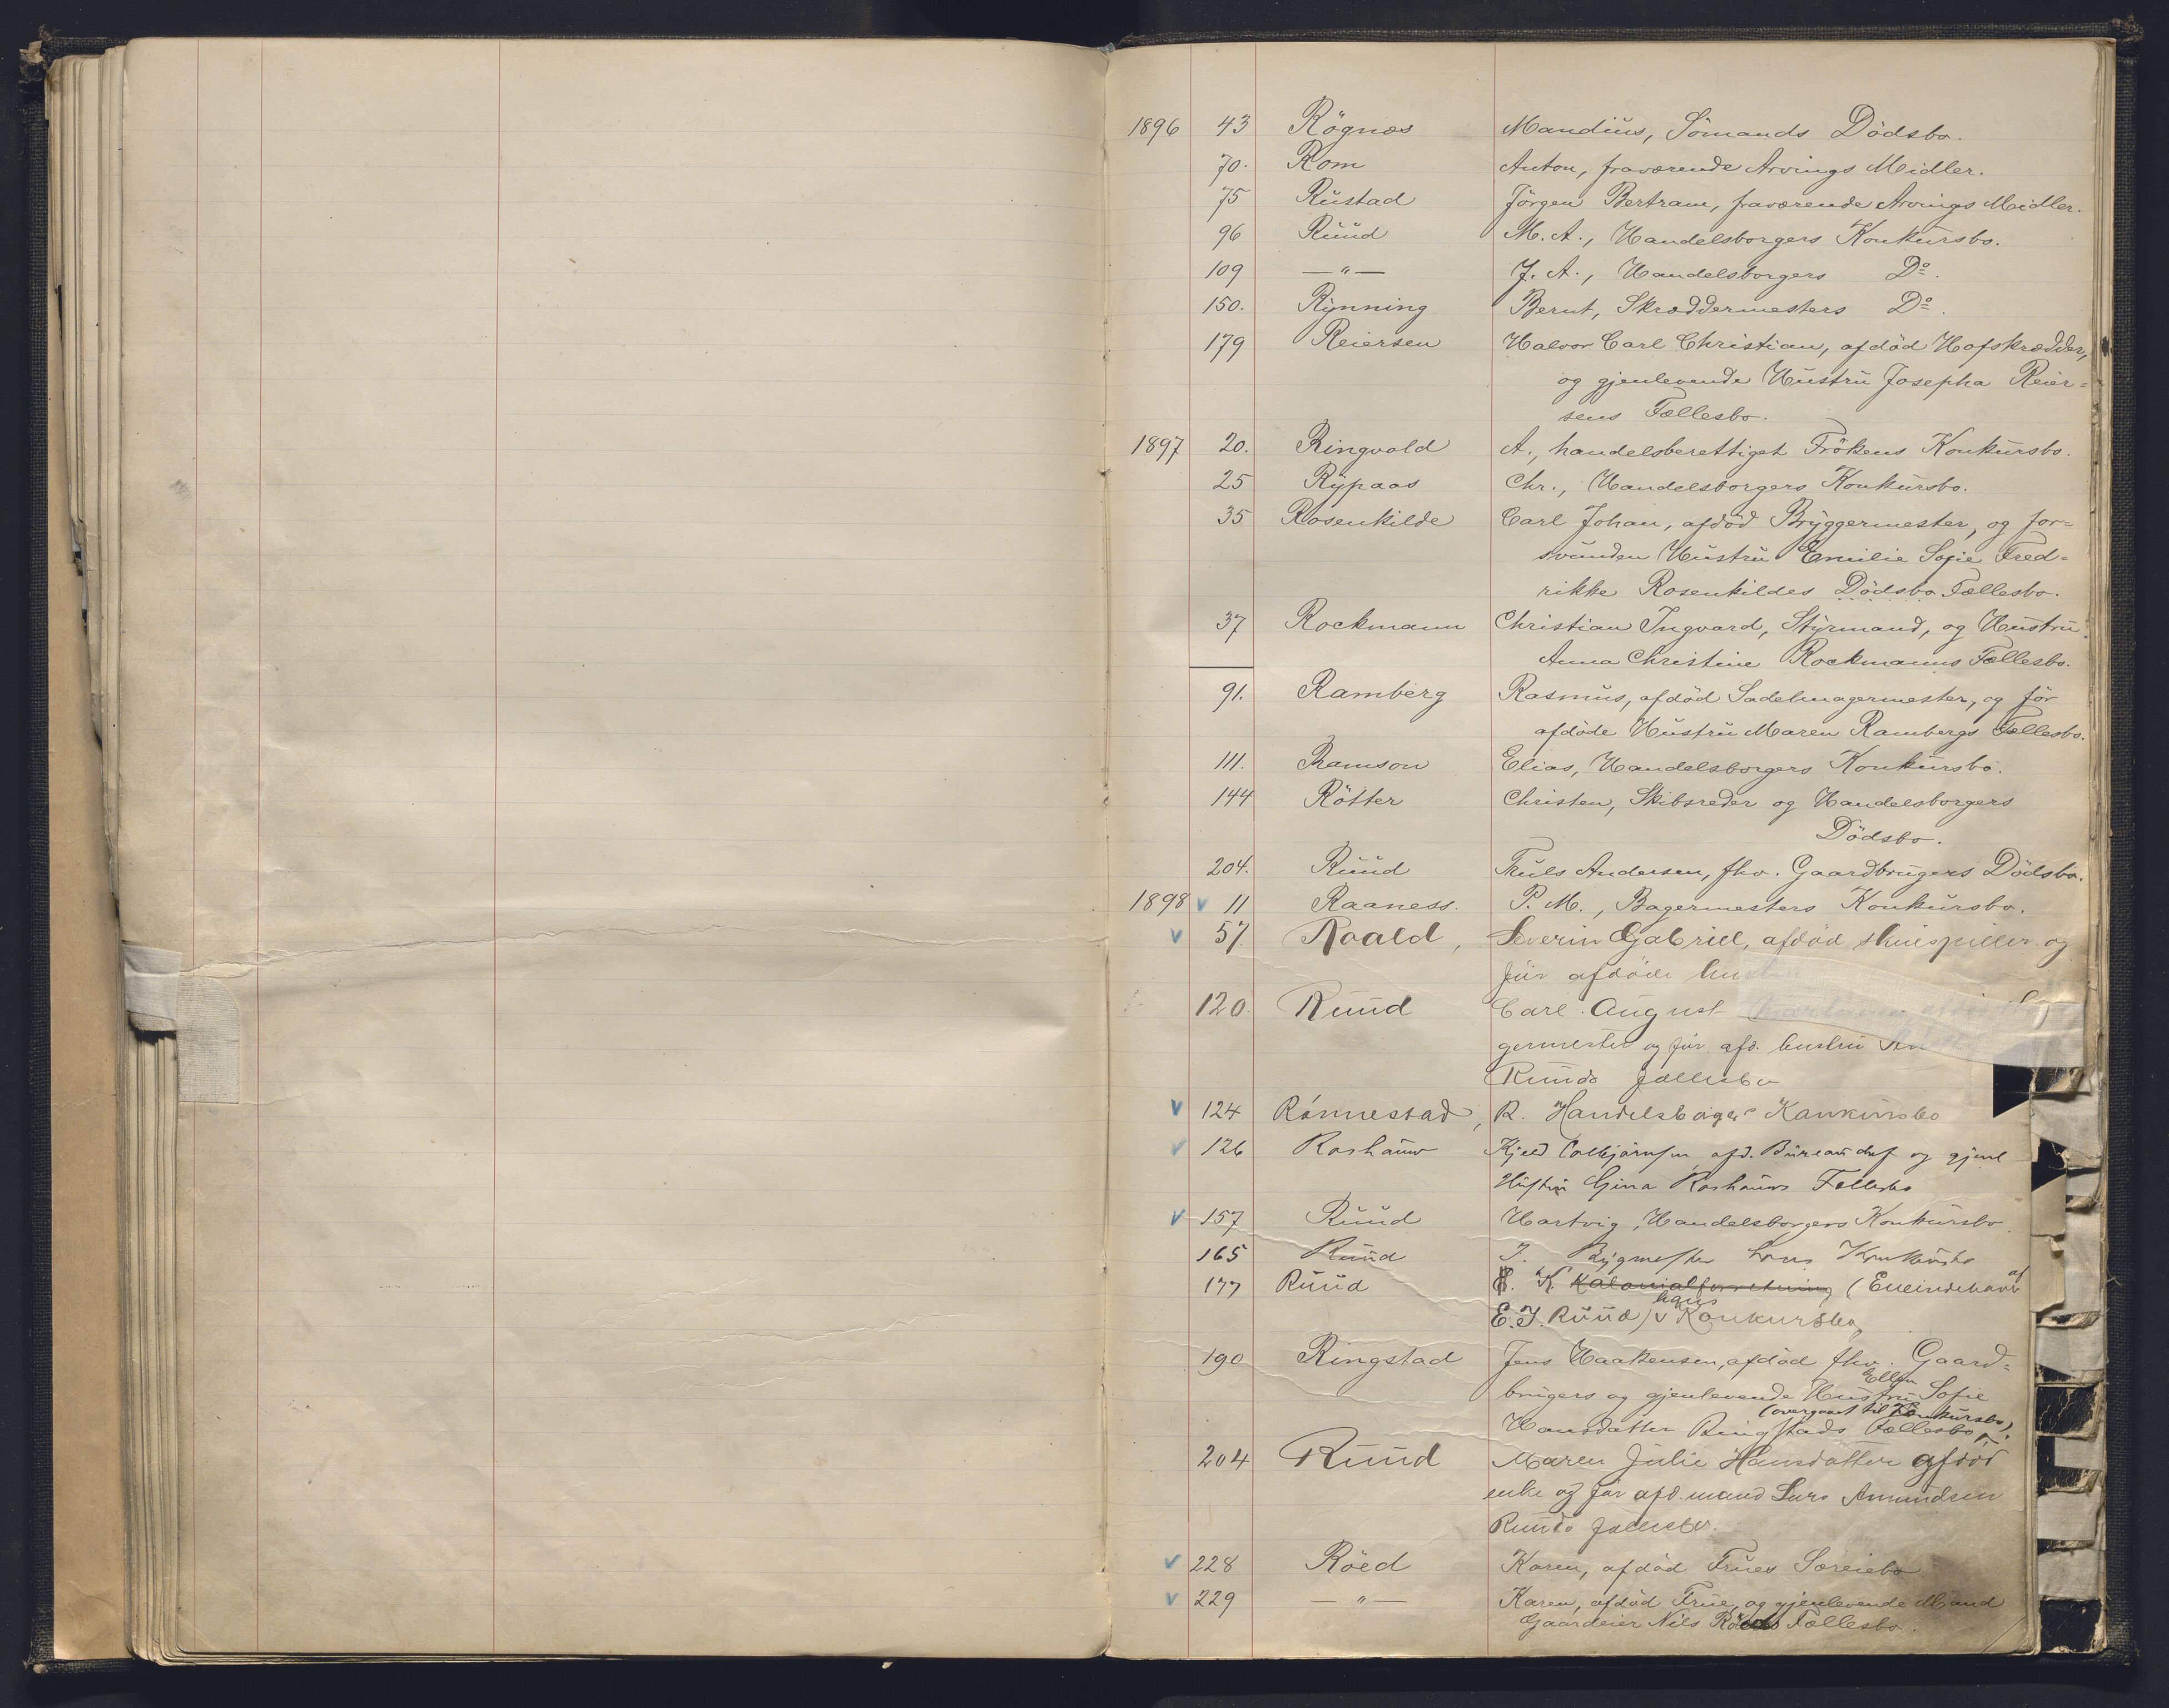 1896 43 Rögnæs Mandius, Sömands Dödsbo.
70. Rom Anton, fraværende Arvings Midler.
75 Rustad Jörgen Bertram, fraværende Arvings Midler.
96 Ruud M. A., Handelsborgers Konkursbo.
109 — " — J. A., Handelsborgers Do.
150. Rynning Bernt, Skræddermesters Do.
179 Reiersen Halvor Carl Christian, afdöd Hofskrædder,
og gjenlevende Hustru Josepha Reier=
sens Fællesbo.
1897 20. Ringvold A., handelsberettiget Frökens Konkursbo.
25 Rypaas Chr., Handelsborgers Konkursbo.
35 Rosenkilde Carl Johan, afdöd Bryggermester, og for=
svunden Hustru Emilie Sofie Fred=
rikke Rosenkildes Dödsbo Fællesbo.
37 Rockmann Christian Ingvard, Styrmand, og Hustru
Anna Christine Rockmanns Fællesbo.
91. Ramberg Rasmus, afdöd Sadelmagermester, og för
afdöde Hustru Maren Rambergs Fællesbo.
111. Ramson Elias, Handelsborgers Konkursbo.
144 Rötter Christen, Skibsreder og Handelsborgers
Dödsbo.
204. Ruud Truls Andersen, fhv. Gaardbrugers Dödsbo.
1898 v 11 Raaness. P. M., Bagermesters Konkursbo.
v 57 Roald, Severin Gabriel, afdöd skuespiller og
för afdöde
120. Ruud Carl August
germester og för afd. hustru
Ruuds fællesbo
v 124 Rönnestad, R. Handelsborgers Konkursbo
v 126 Roshauw Kjeld afd. Bureauchef og gjenl
Hustru Gina Roshauws Fællesbo
v 157 Ruud Hartvig, Handelsborgers Konkursbo
165 Ruud J. Bygmester Konkursbo
177 Ruud E. K. Kolonialforretning (Eneindehaver af
E. J. Ruud) v Konkursbo
190 Ringstad Jens Haakensen, afdöd fhv. Gaard=
brugers og gjenlevende Hustru Ellen Sofie
(overgaaet til Konkursbo)
Hansdatter Ringstads Fællesbo.
204 Ruud Maren Julie Hansdatter afdöd
enke og för afd. mand Lars Amundsen
Ruuds fællesbo.
v 228 Röed Karen, afdöd Frues Særeiebo
v 229 — " — Karen, afdöd Frue, og gjenlevende Mand
Gaardeier Nils Röeds Fællesbo.